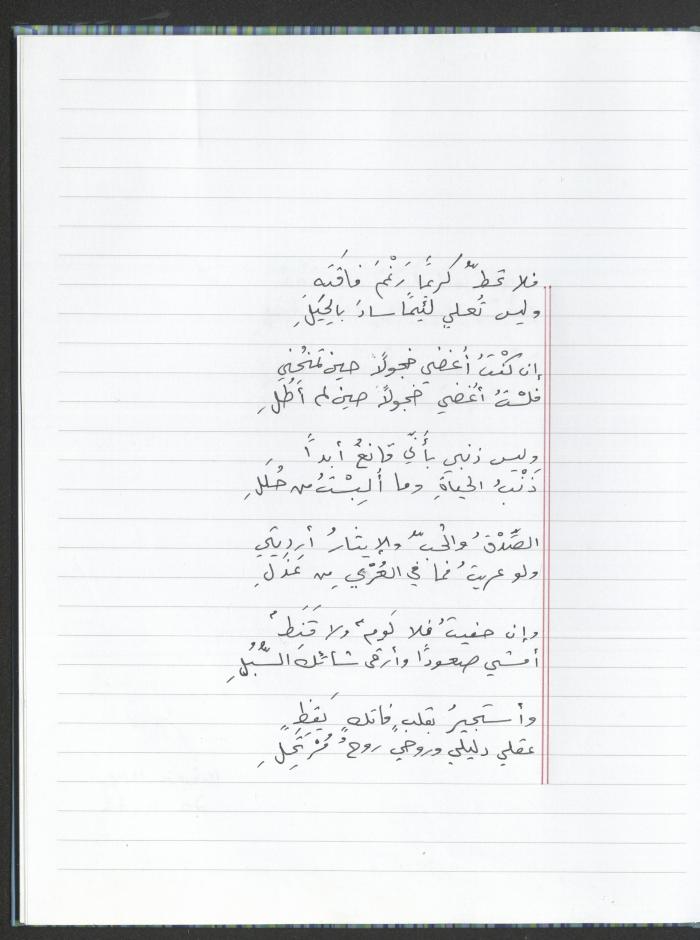 فلا تحطُّ كريمًا رَغْمَ فاقَتِه
وليس تُعلي لئيمًا سادَ بالحِيَلِ
إن كُنْتُ أُغضي خجولًا حين تمنحُني
فلسْتُ أُغضي خجولًا حين لم أَطُلِ
وليس ذنبي بأَنّي قانعٌ أبدًا
ذَنْبُ الحياةِ وما أُلبِسْتُ من حُلَلِ
الصِّدْقُ والحُبُّ والإيثارُ أرديتي
ولو عريتُ فما في العُرْيِ مِن عَذَلِ
وإن حفيتُ فلا لَومٌ ولا قَنَطٌ
أمشي صعودًا وأرقى شائكَ السُّبُلِ
وأستجيرُ بقلبٍ فاتكٍ يَقِظٍ
عقلي دليلي وروحي روحُ مُرْتَحِلِ